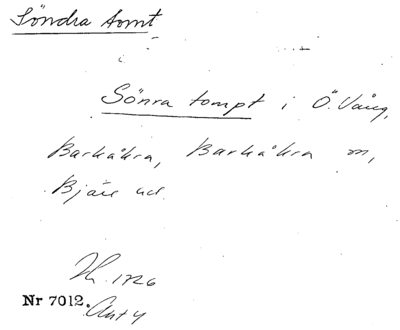 Söndra tomt
Sönra tompt i Ö. Vång,
Barkåkra, Barkåkra sn,
Bjäre hd.
H. 1726
Nr 7012.
Akt 4